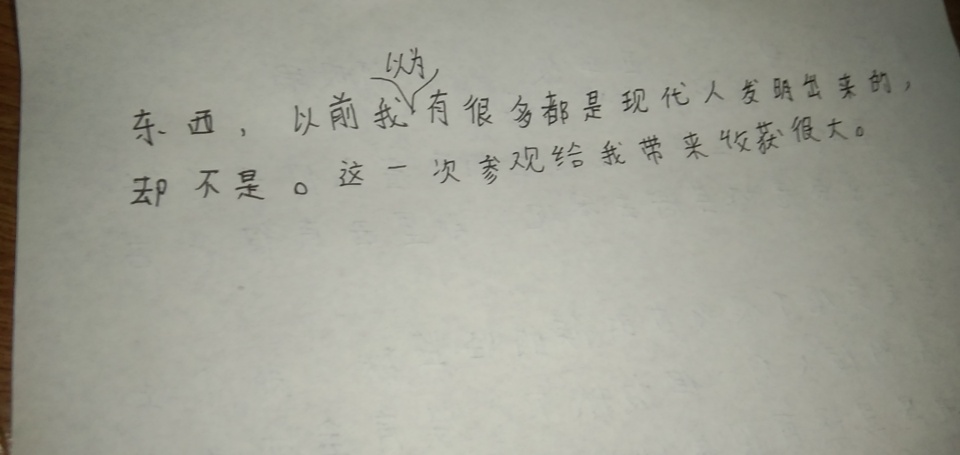 东西，以前我以为有很多都是现代人发明出来的，
却不是。这一次参观给我带来收获很大。